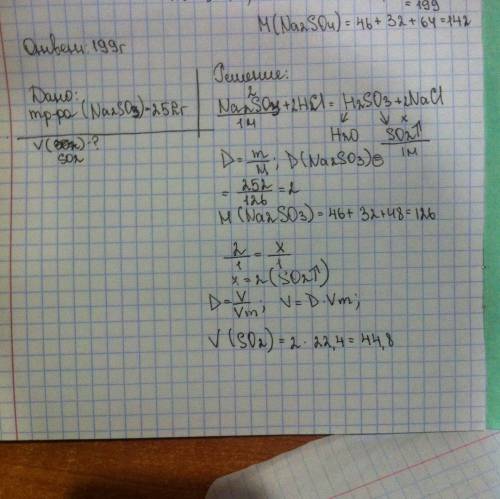 = 199
M(Na2SO4) = 46 + 32 + 64 = 142
Ответ: 199г
Дано:
mр-ра (Na2SO3) = 252г
V(SO2) - ?
Решение:
2 x
Na2SO3 + 2HCl = H2SO3 + 2NaCl
1м H2O SO2↑
1м
D = m/M ; D(Na2SO3) =
= 252/126 = 2
M(Na2SO3) = 46 + 32 + 48 = 126
2/1 = x/1
x = 2(SO2↑)
D = V/Vm ; V = D · Vm ;
V(SO2) = 2 · 22,4 = 44,8